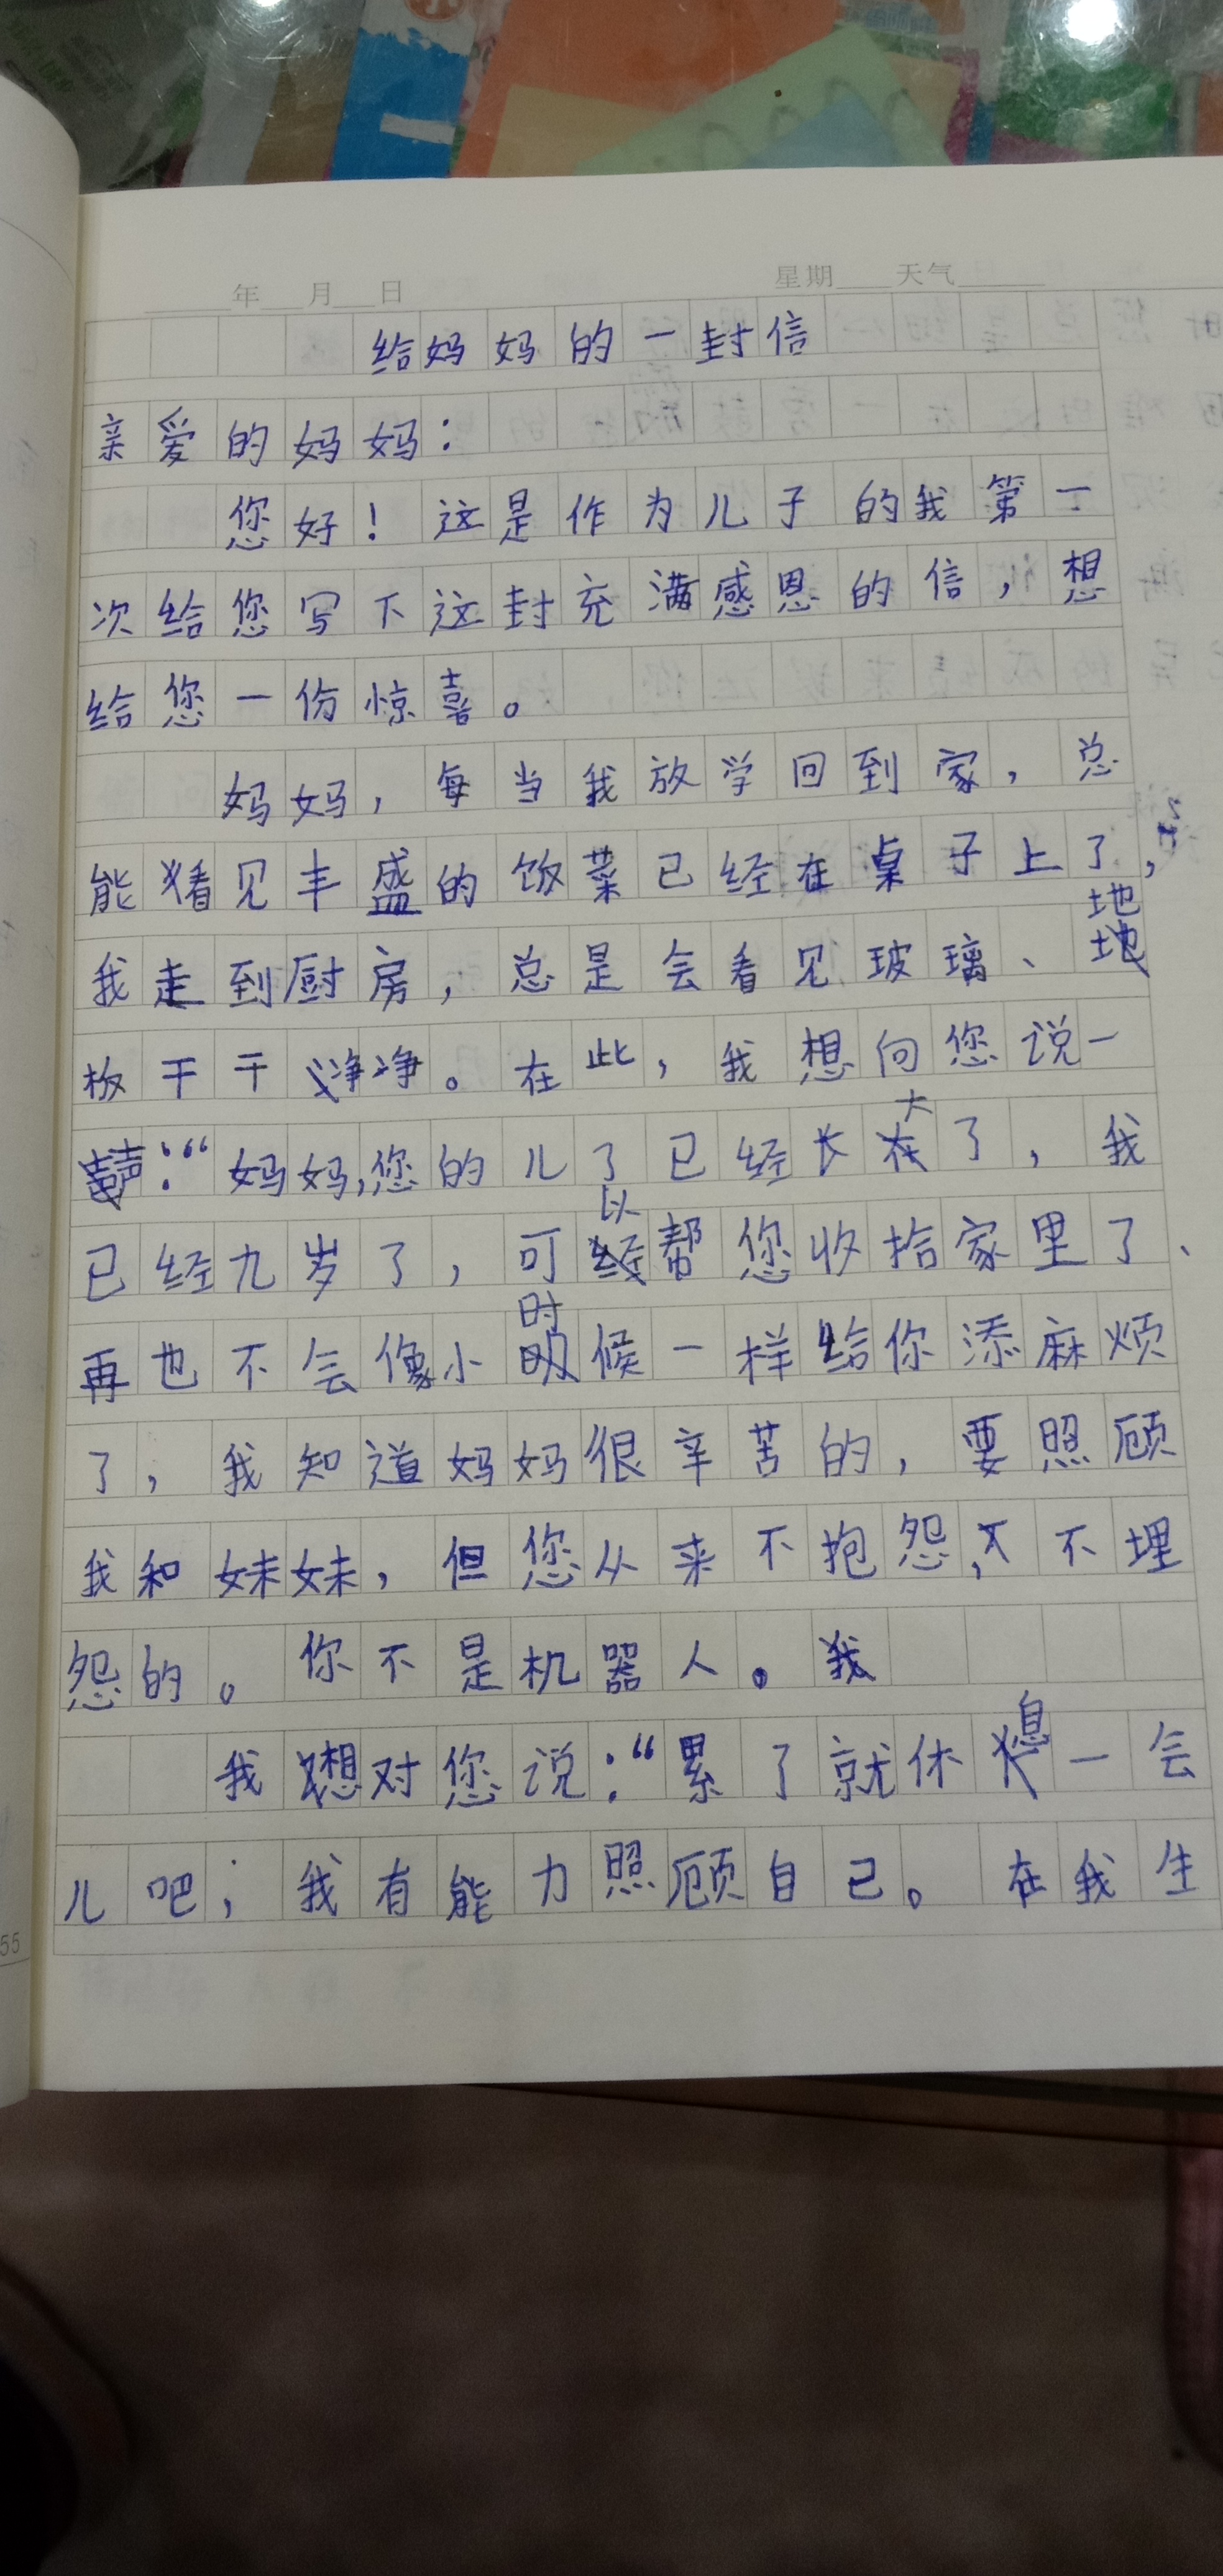 年 月 日 星期 天气
给妈妈的一封信
亲爱的妈妈：
您好！这是作为儿子的我第一
次给您写下这封充满感恩的信，想
给您一份惊喜。
妈妈，每当我放学回到家，总
能看见丰盛的饭菜已经在桌子上了，
我走到厨房，总是会看见玻璃、地
板干干净净。在此，我想向您说一
声：“妈妈，您的儿了已经长大了，我
已经九岁了，可以帮您收拾家里了、
再也不会像小时候一样给你添麻烦
了，我知道妈妈很辛苦的，要照顾
我和妹妹，但您从来不抱怨，不埋
怨的。你不是机器人。
我想对您说：“累了就休息一会
儿吧；我有能力照顾自己。在我生
55